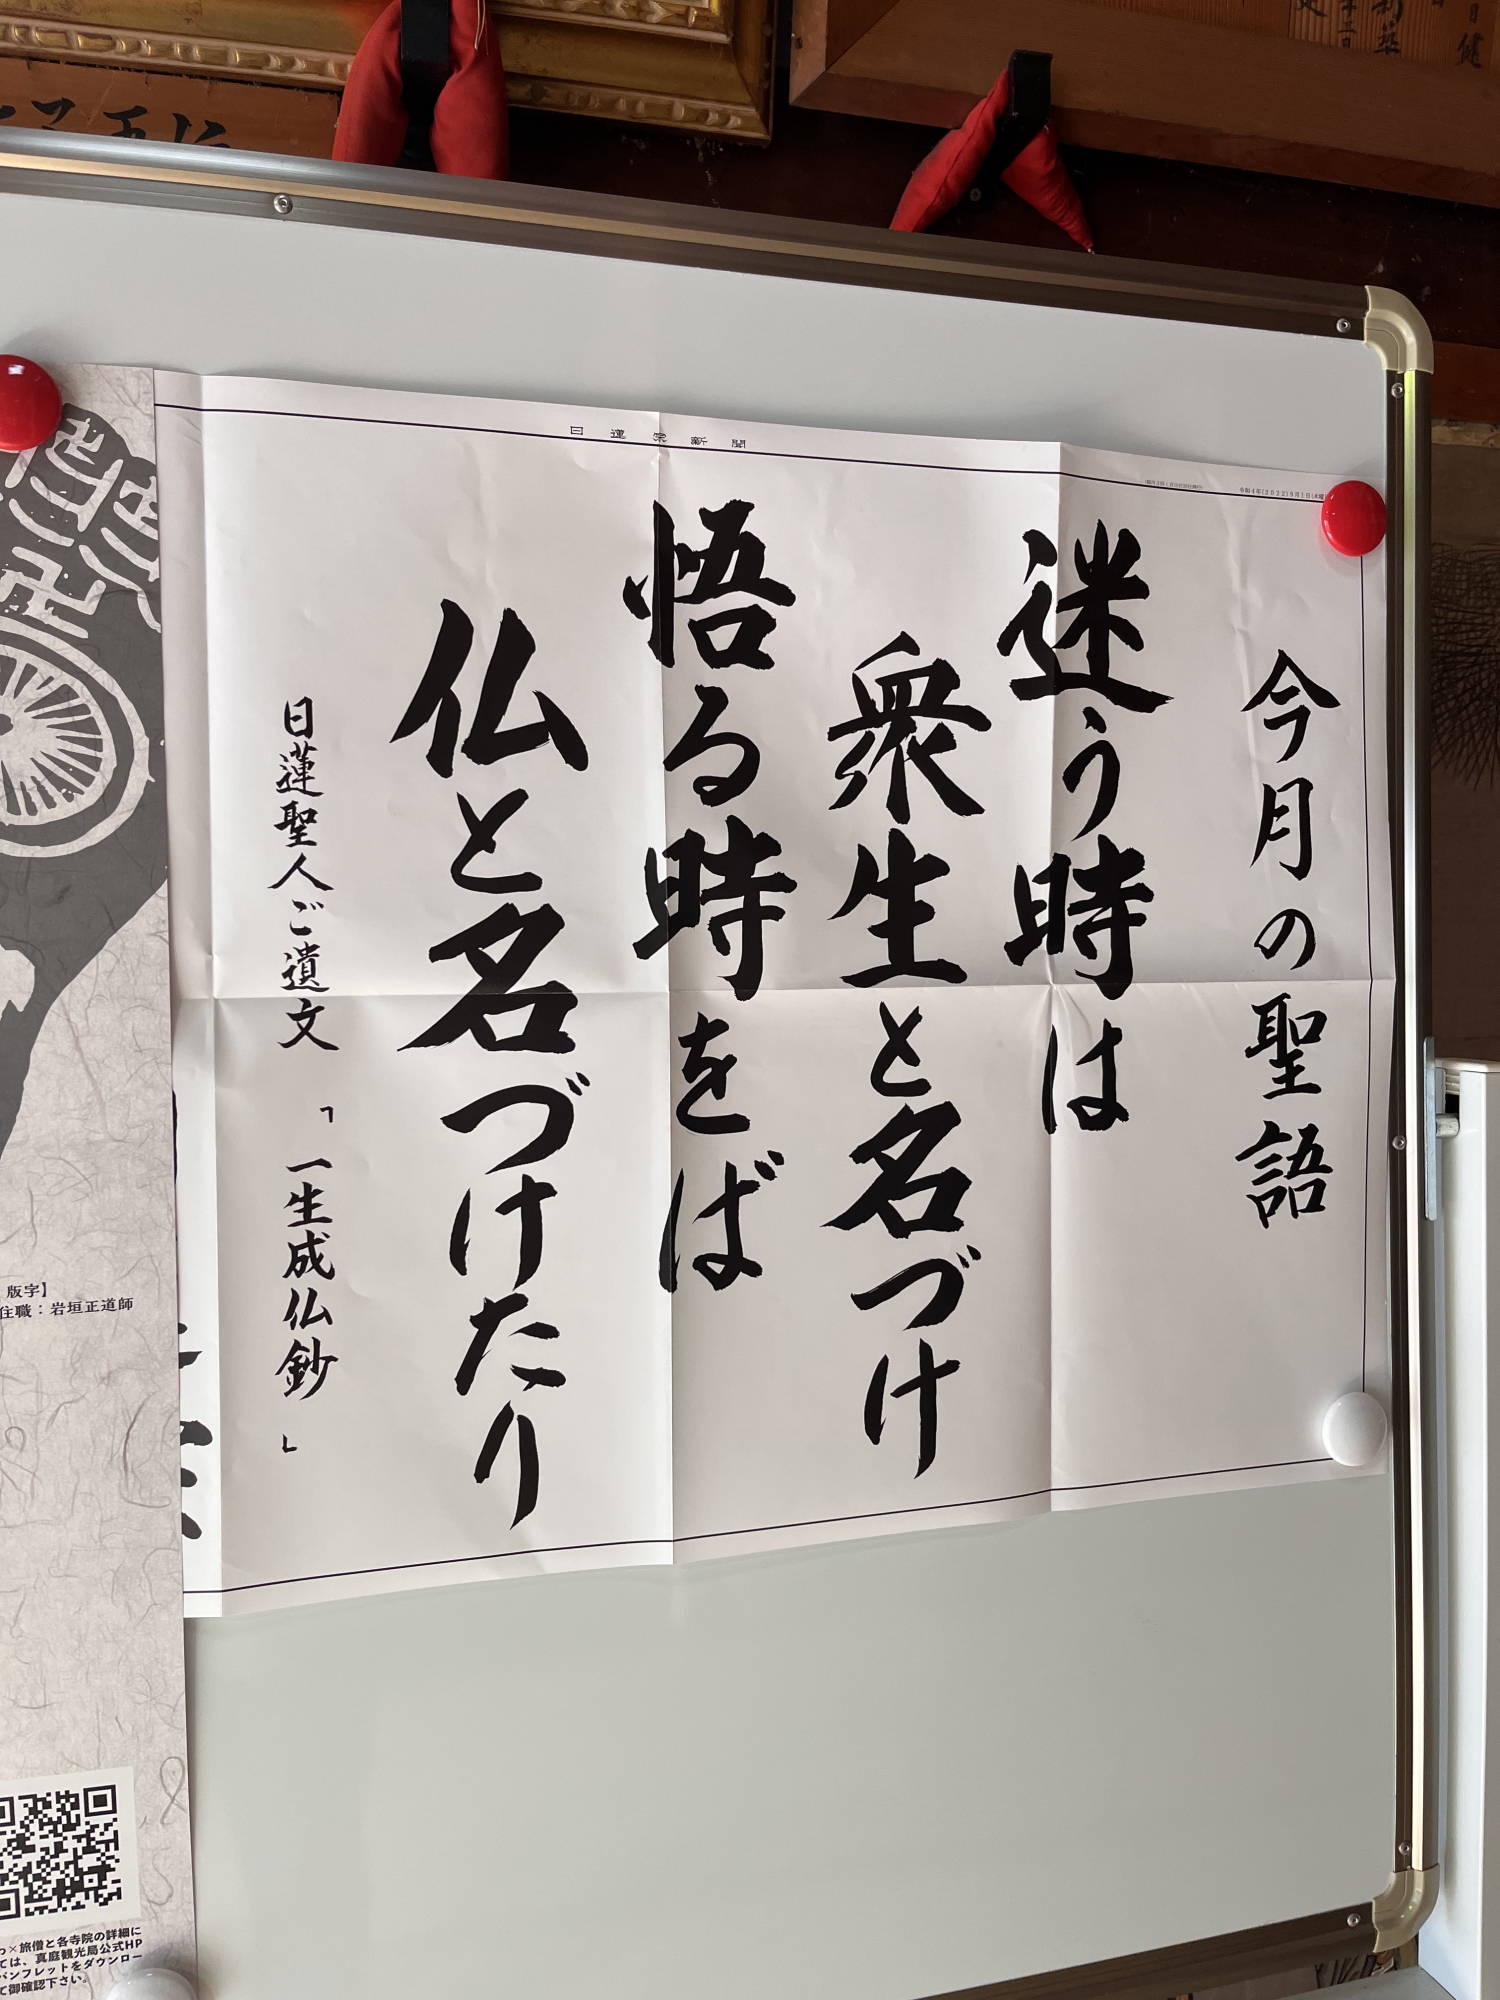 日蓮宗新聞
今月の聖語
迷う時は
衆生と名づけ
悟る時をば
仏と名づけたり
日蓮聖人ご遺文「一生成仏鈔」
版字】
住職：岩垣正道師
×旅僧と各寺院の詳細に
ては、真庭観光局公式HP
パンフレットをダウンロー
て御確認下さい。